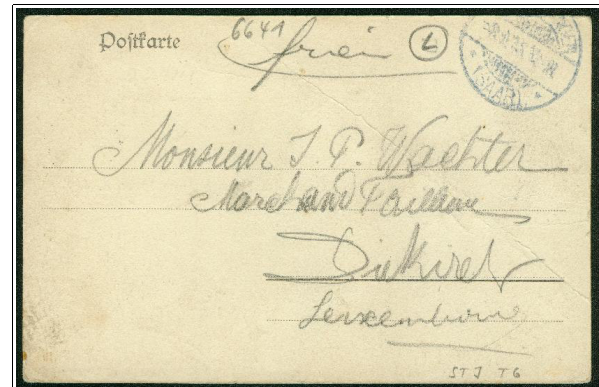 Postkarte
6641
frei
L
(SAAR)
Monsieur J. P. Wachter
Marchand Tailleur
Diekirch
Luxembourg
STJ TG